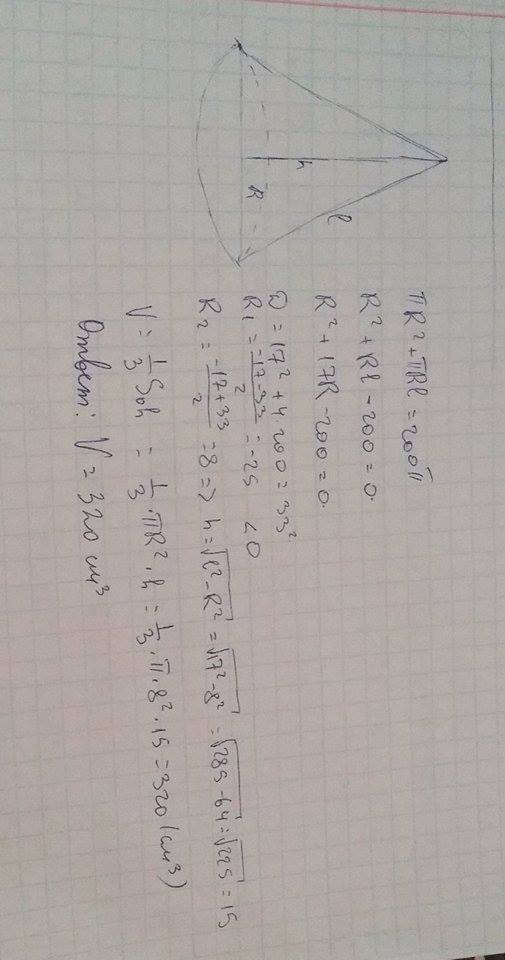 h
R
l
πR² + πRl = 200π
R² + Rl - 200 = 0.
R² + 17R - 200 = 0.
D = 17² + 4·200 = 33²
R₁ = (-17-33)/2 = -25 < 0
R₂ = (-17+33)/2 = 8 => h = √(l² - R²) = √(17² - 8²) = √(289 - 64) = √225 = 15
V = 1/3 Sоh = 1/3 · πR² · h = 1/3 · π · 8² · 15 = 320 (см³)
Ответ: V = 320 см³